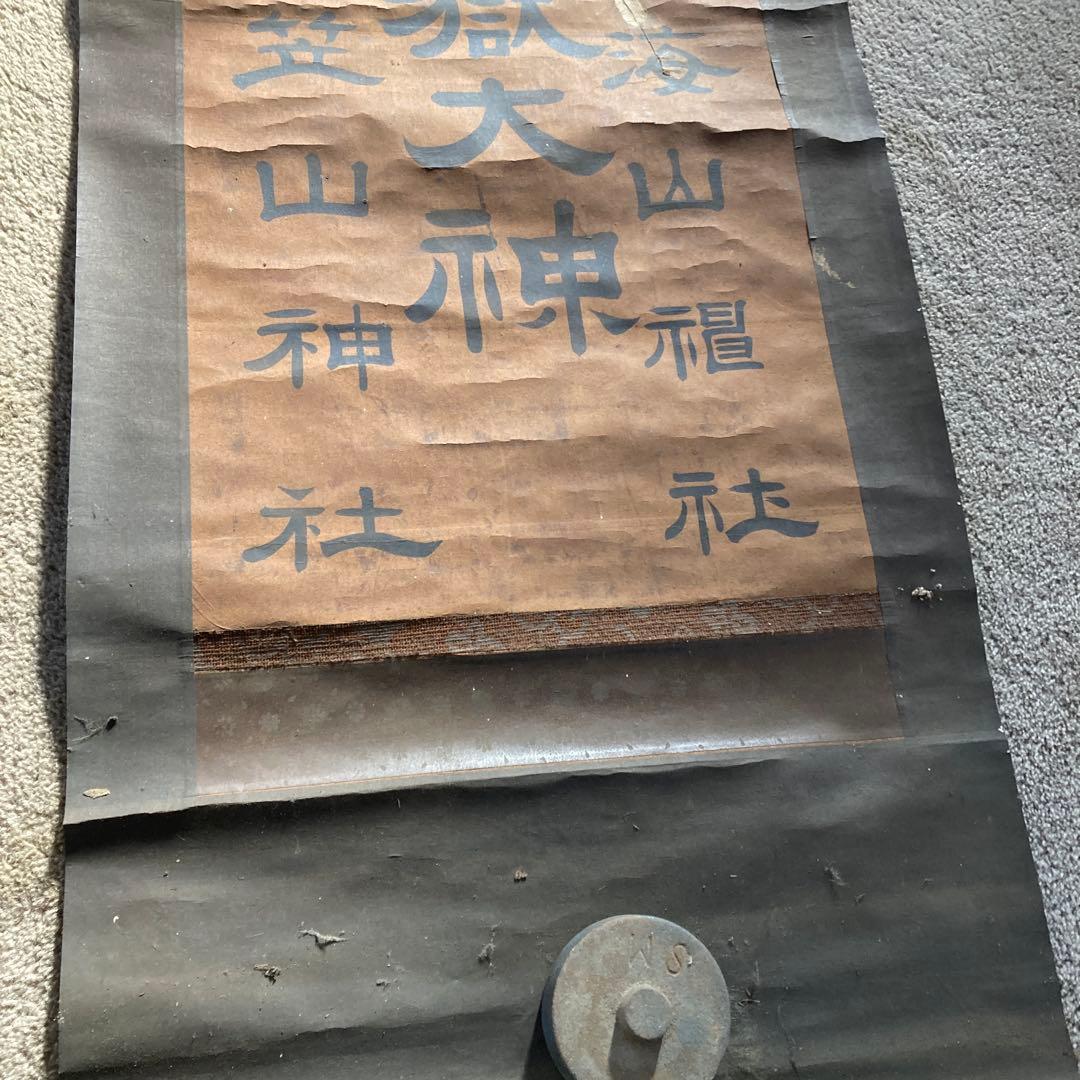 海山神社
嶽大神
笠山神社